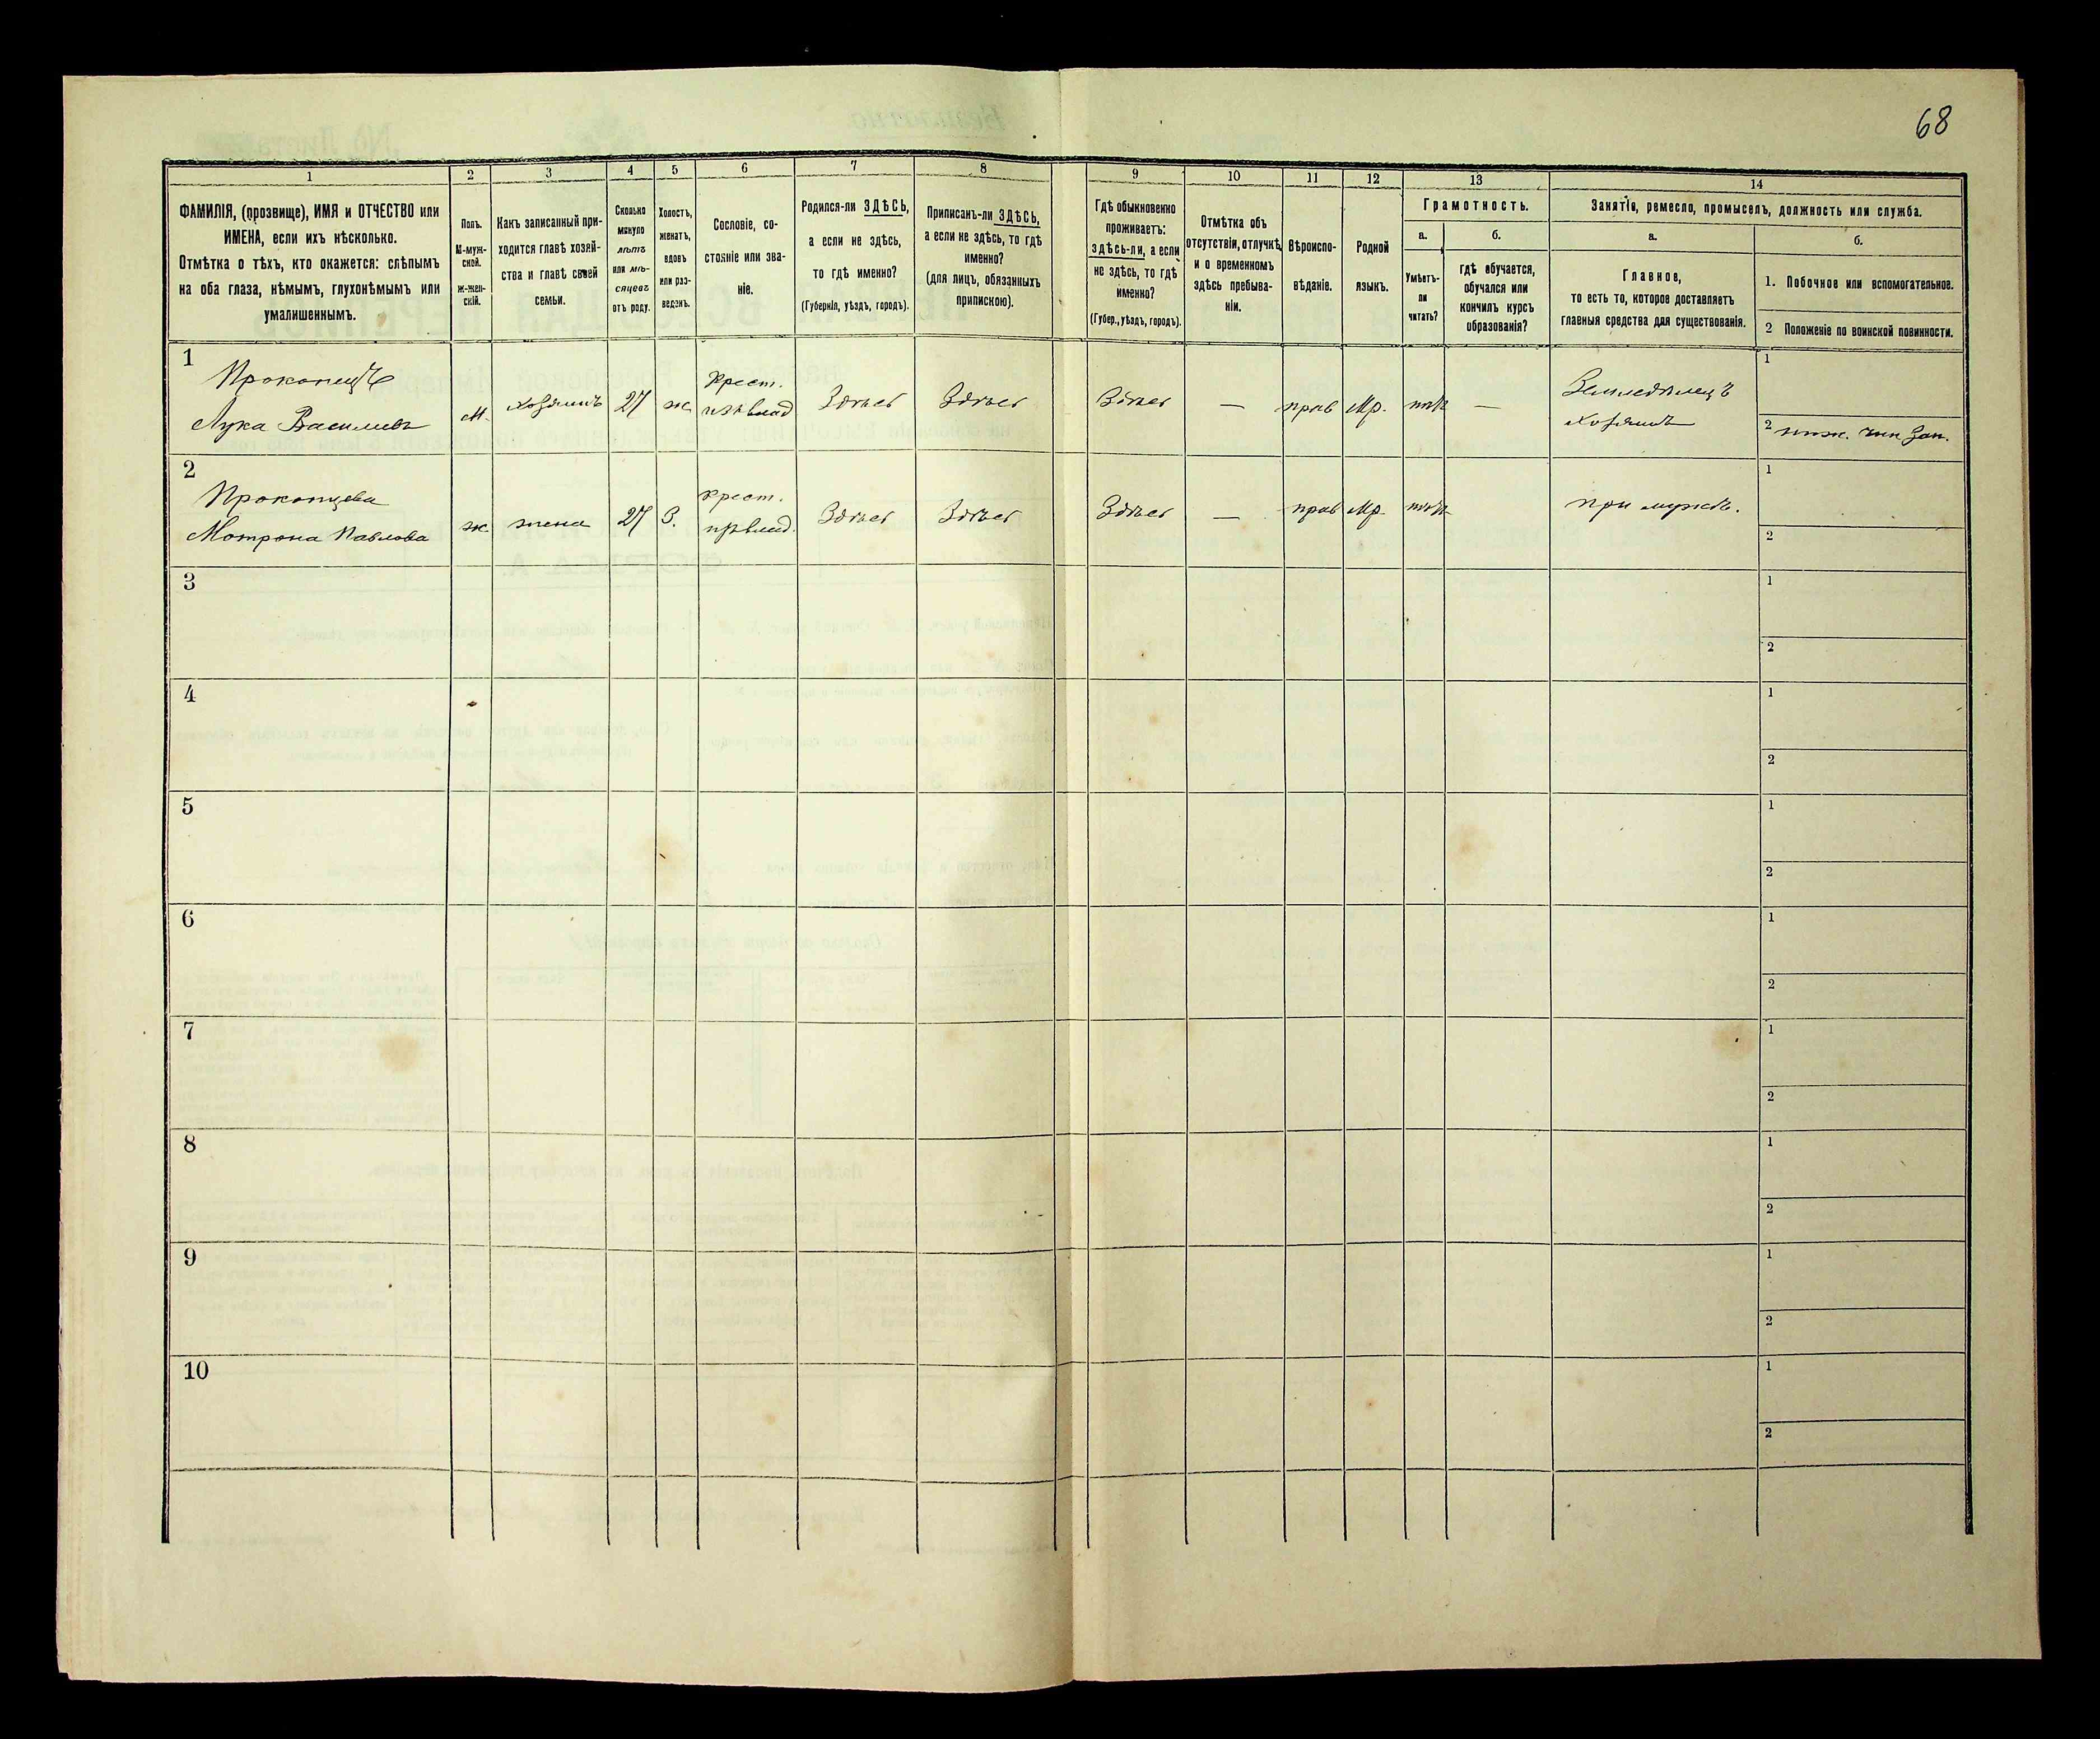 68
1 2 3 4 5 6 7 8 9 10 11 12 13 14
ФАМИЛІЯ, (прозвище), ИМЯ и ОТЧЕСТВО или
ИМЕНА, если ихъ нѣсколько.
Отмѣтка о тѣхъ, кто окажется: слѣпымъ
на оба глаза, нѣмымъ, глухонѣмымъ или
умалишеннымъ.
Полъ.
М-муж-
ской.
ж-жен-
скій.
Какъ записанный при-
ходится главѣ хозяй-
ства и главѣ своей
семьи.
Сколько
минуло
лѣтъ
или мѣ-
сяцевъ
отъ роду.
Холостъ,
женатъ,
вдовъ
или раз-
веденъ.
Сословіе, со-
стояніе или зва-
ніе.
Родился-ли ЗДѢСЬ,
а если не здѣсь,
то гдѣ именно?
(Губернія, уѣздъ, городъ).
Приписанъ-ли ЗДѢСЬ,
а если не здѣсь, то гдѣ
именно?
(для лицъ, обязанныхъ
припискою).
Гдѣ обыкновенно
проживаетъ:
здѣсь-ли, а если
не здѣсь, то гдѣ
именно?
(Губер., уѣздъ, городъ).
Отмѣтка объ
отсутствіи, отлучкѣ
и о временномъ
здѣсь пребыва-
ніи.
Вѣроиспо-
вѣданіе.
Родной
языкъ.
Грамотность.
а.
Умѣетъ-
ли
читать?
б.
гдѣ обучается,
обучался или
кончилъ курсъ
образованія?
Занятіе, ремесло, промыселъ, должность или служба.
а.
Главное,
то есть то, которое доставляетъ
главныя средства для существованія.
б.
1. Побочное или вспомогательное.
2 Положеніе по воинской повинности.
1
Прокопецъ
Лука Васильевъ
М. хозяинъ 27 ж
Крест.
Здѣсь Здѣсь Здѣсь — прав Мр. нѣт —
Земледѣлецъ
хозяинъ
1
2 ниж. чин зап.
2
Прокопцева
Мотрона Павлова
ж. жена 27 З.
Крест.
Здѣсь Здѣсь Здѣсь — прав Мр. нѣт
при мужѣ.
1
2
3
1
2
4
1
2
5
1
2
6
1
2
7
1
2
8
1
2
9
1
2
10
1
2